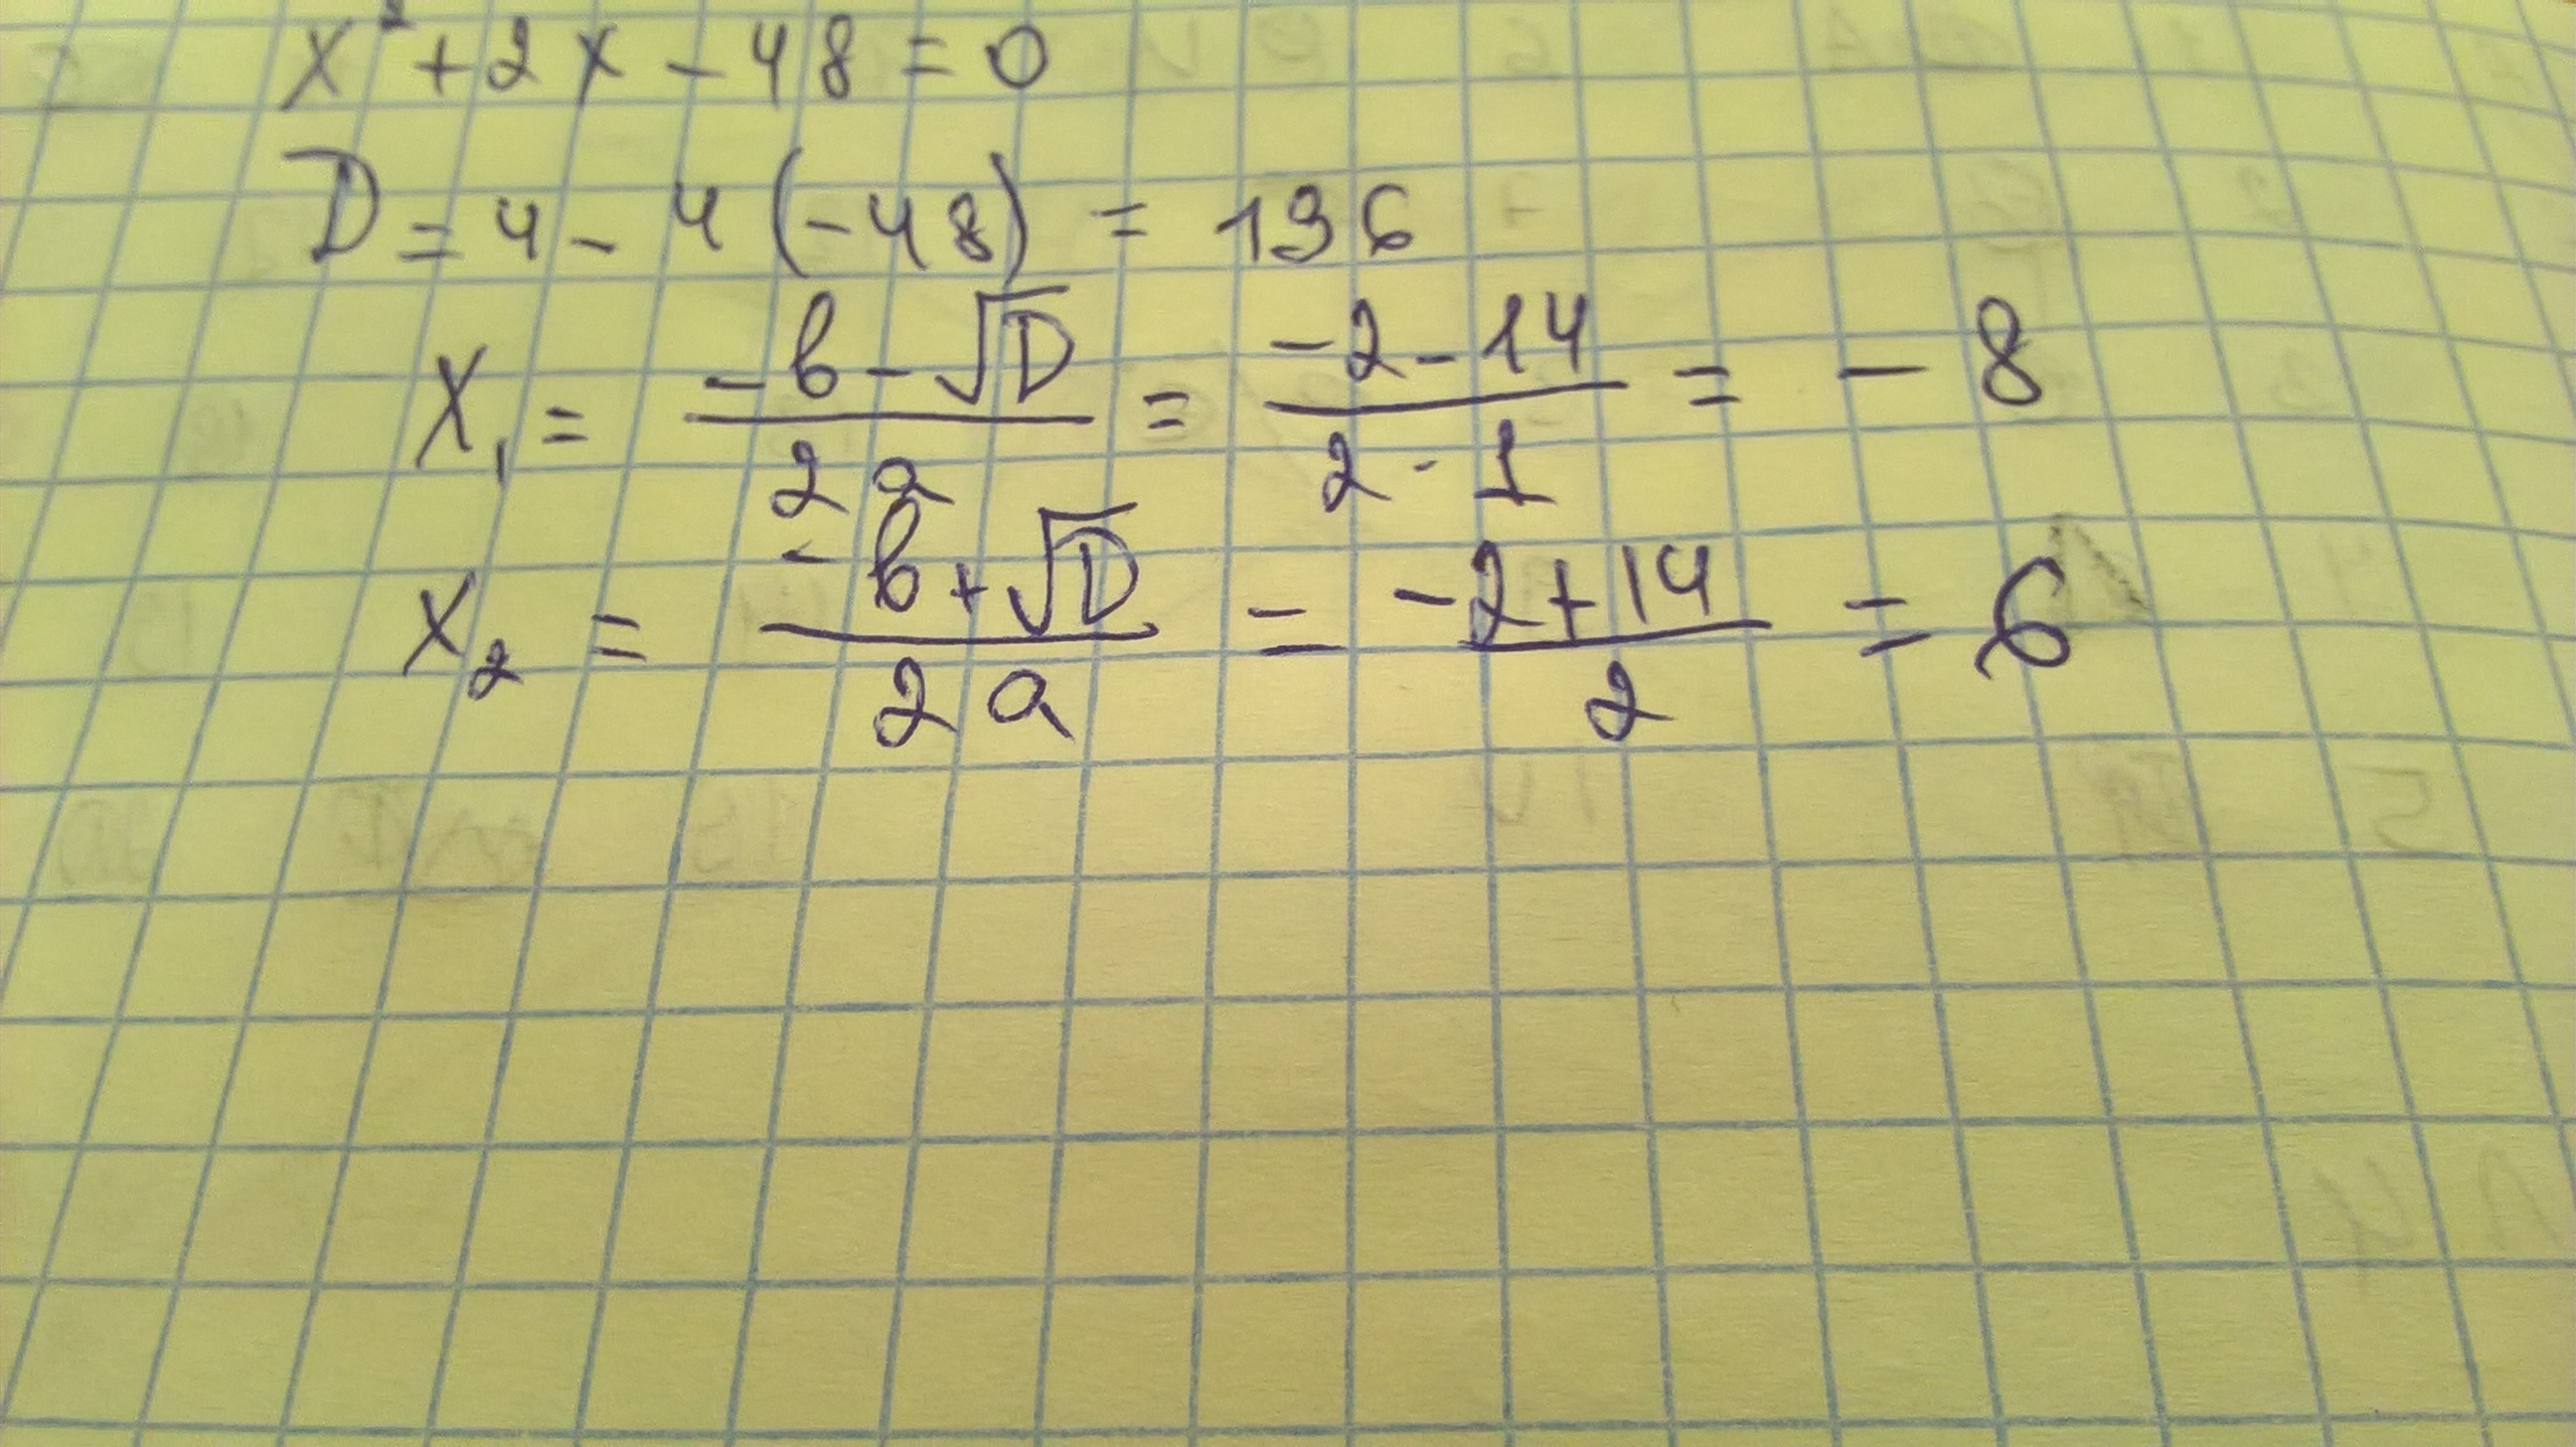 x² + 2x - 48 = 0
D = 4 - 4(-48) = 196
x₁ = (-b - √D) / (2a) = (-2 - 14) / (2 · 1) = -8
x₂ = (-b + √D) / (2a) = (-2 + 14) / 2 = 6